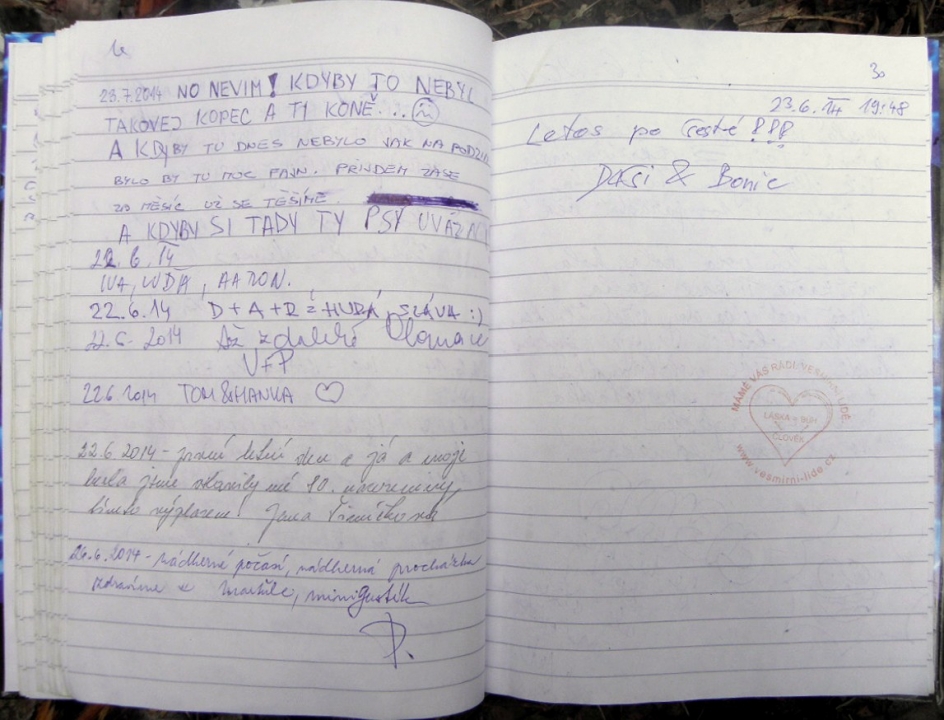 23.7.2014 NO NEVIM! KDYBY TO NEBYL
TAKOVEJ KOPEC A TY KONĚ...
A KDYBY TU DNES NEBYLO JAK NA PODZIM
BYLO BY TU MOC FAJN. PŘIJDEM ZASE
ZA MĚSÍC UŽ SE TĚŠÍME.
A KDYBY SI TADY TY PSY UVÁZALI
22.6.14
IVA, , AARON.
22.6.14 D + A + R = HURÁ, SLÁVA :)
22.6. 2014 Až z daleké Olomouce
V+P
22.6 2014 TOM & HANKA ♡
22.6.2014 - první letní den a já a moji
jsme slavily mé 10. narozeniny,
! Jana
26.6.2014 - nádherné počasí, nádherná procházka
P.
30
23.6.14 19:48
Letos po česté !!!
& Bonie
MÁME VÁS RÁDI, VESMÍRNÍ LIDÉ.
LÁSKA = BŮH
ČLOVĚK
www.vesmirni-lide.cz